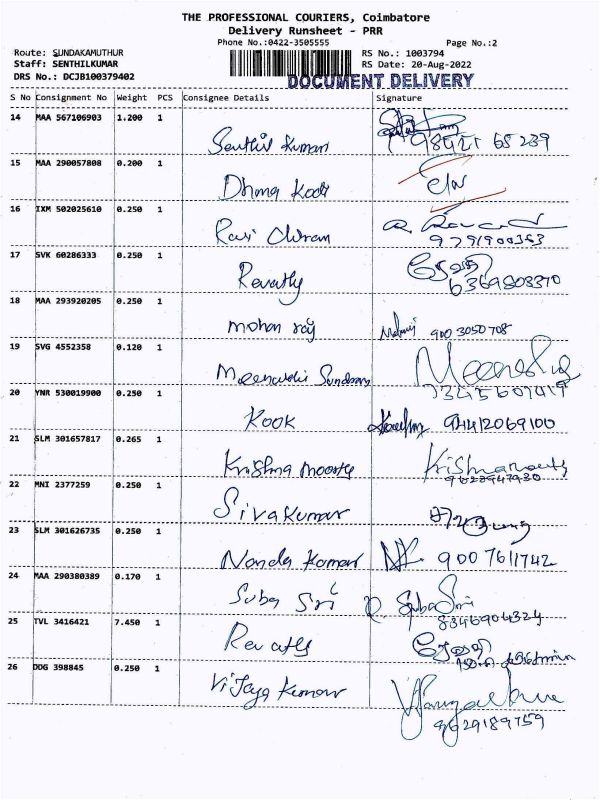 THE PROFESSIONAL COURIERS, Coimbatore
Delivery Runsheet - PRR
Phone No.:0422-3505555
Page No.:2
Route: SUNDAKAMUTHUR
RS No.: 1003794
Staff: SENTHILKUMAR
RS Date: 20-Aug-2022
DRS No.: DCJB100379402
DOCUMENT DELIVERY
S No Consignment No Weight PCS Consignee Details Signature
14 MAA 567106903 1.200 1
Senthil Kumar 98421 65239
15 MAA 290057808 0.200 1
Dhma Kodi
16 IXM 502025610 0.250 1
Ravi
9791900363
17 SVK 60286333 0.250 1
Revathy
6369803370
18 MAA 293920205 0.250 1
mohan raj 900 3050708
19 SVG 4552358 0.120 1
Meenakshi Sundaram
20 YNR 530019900 0.250 1
Kook
21 SLM 301657817 0.265 1
Krishna moorthy
22 MNI 2377259 0.250 1
Siva Kumar
23 SLM 301626735 0.250 1
Nanda Kumar 900 7611742
24 MAA 290380389 0.170 1
Suba Sri Suba Sri
8346904324
25 TVL 3416421 7.450 1
Revathy
26 DDG 398845 0.250 1
Vijaya Kumar
9629189759